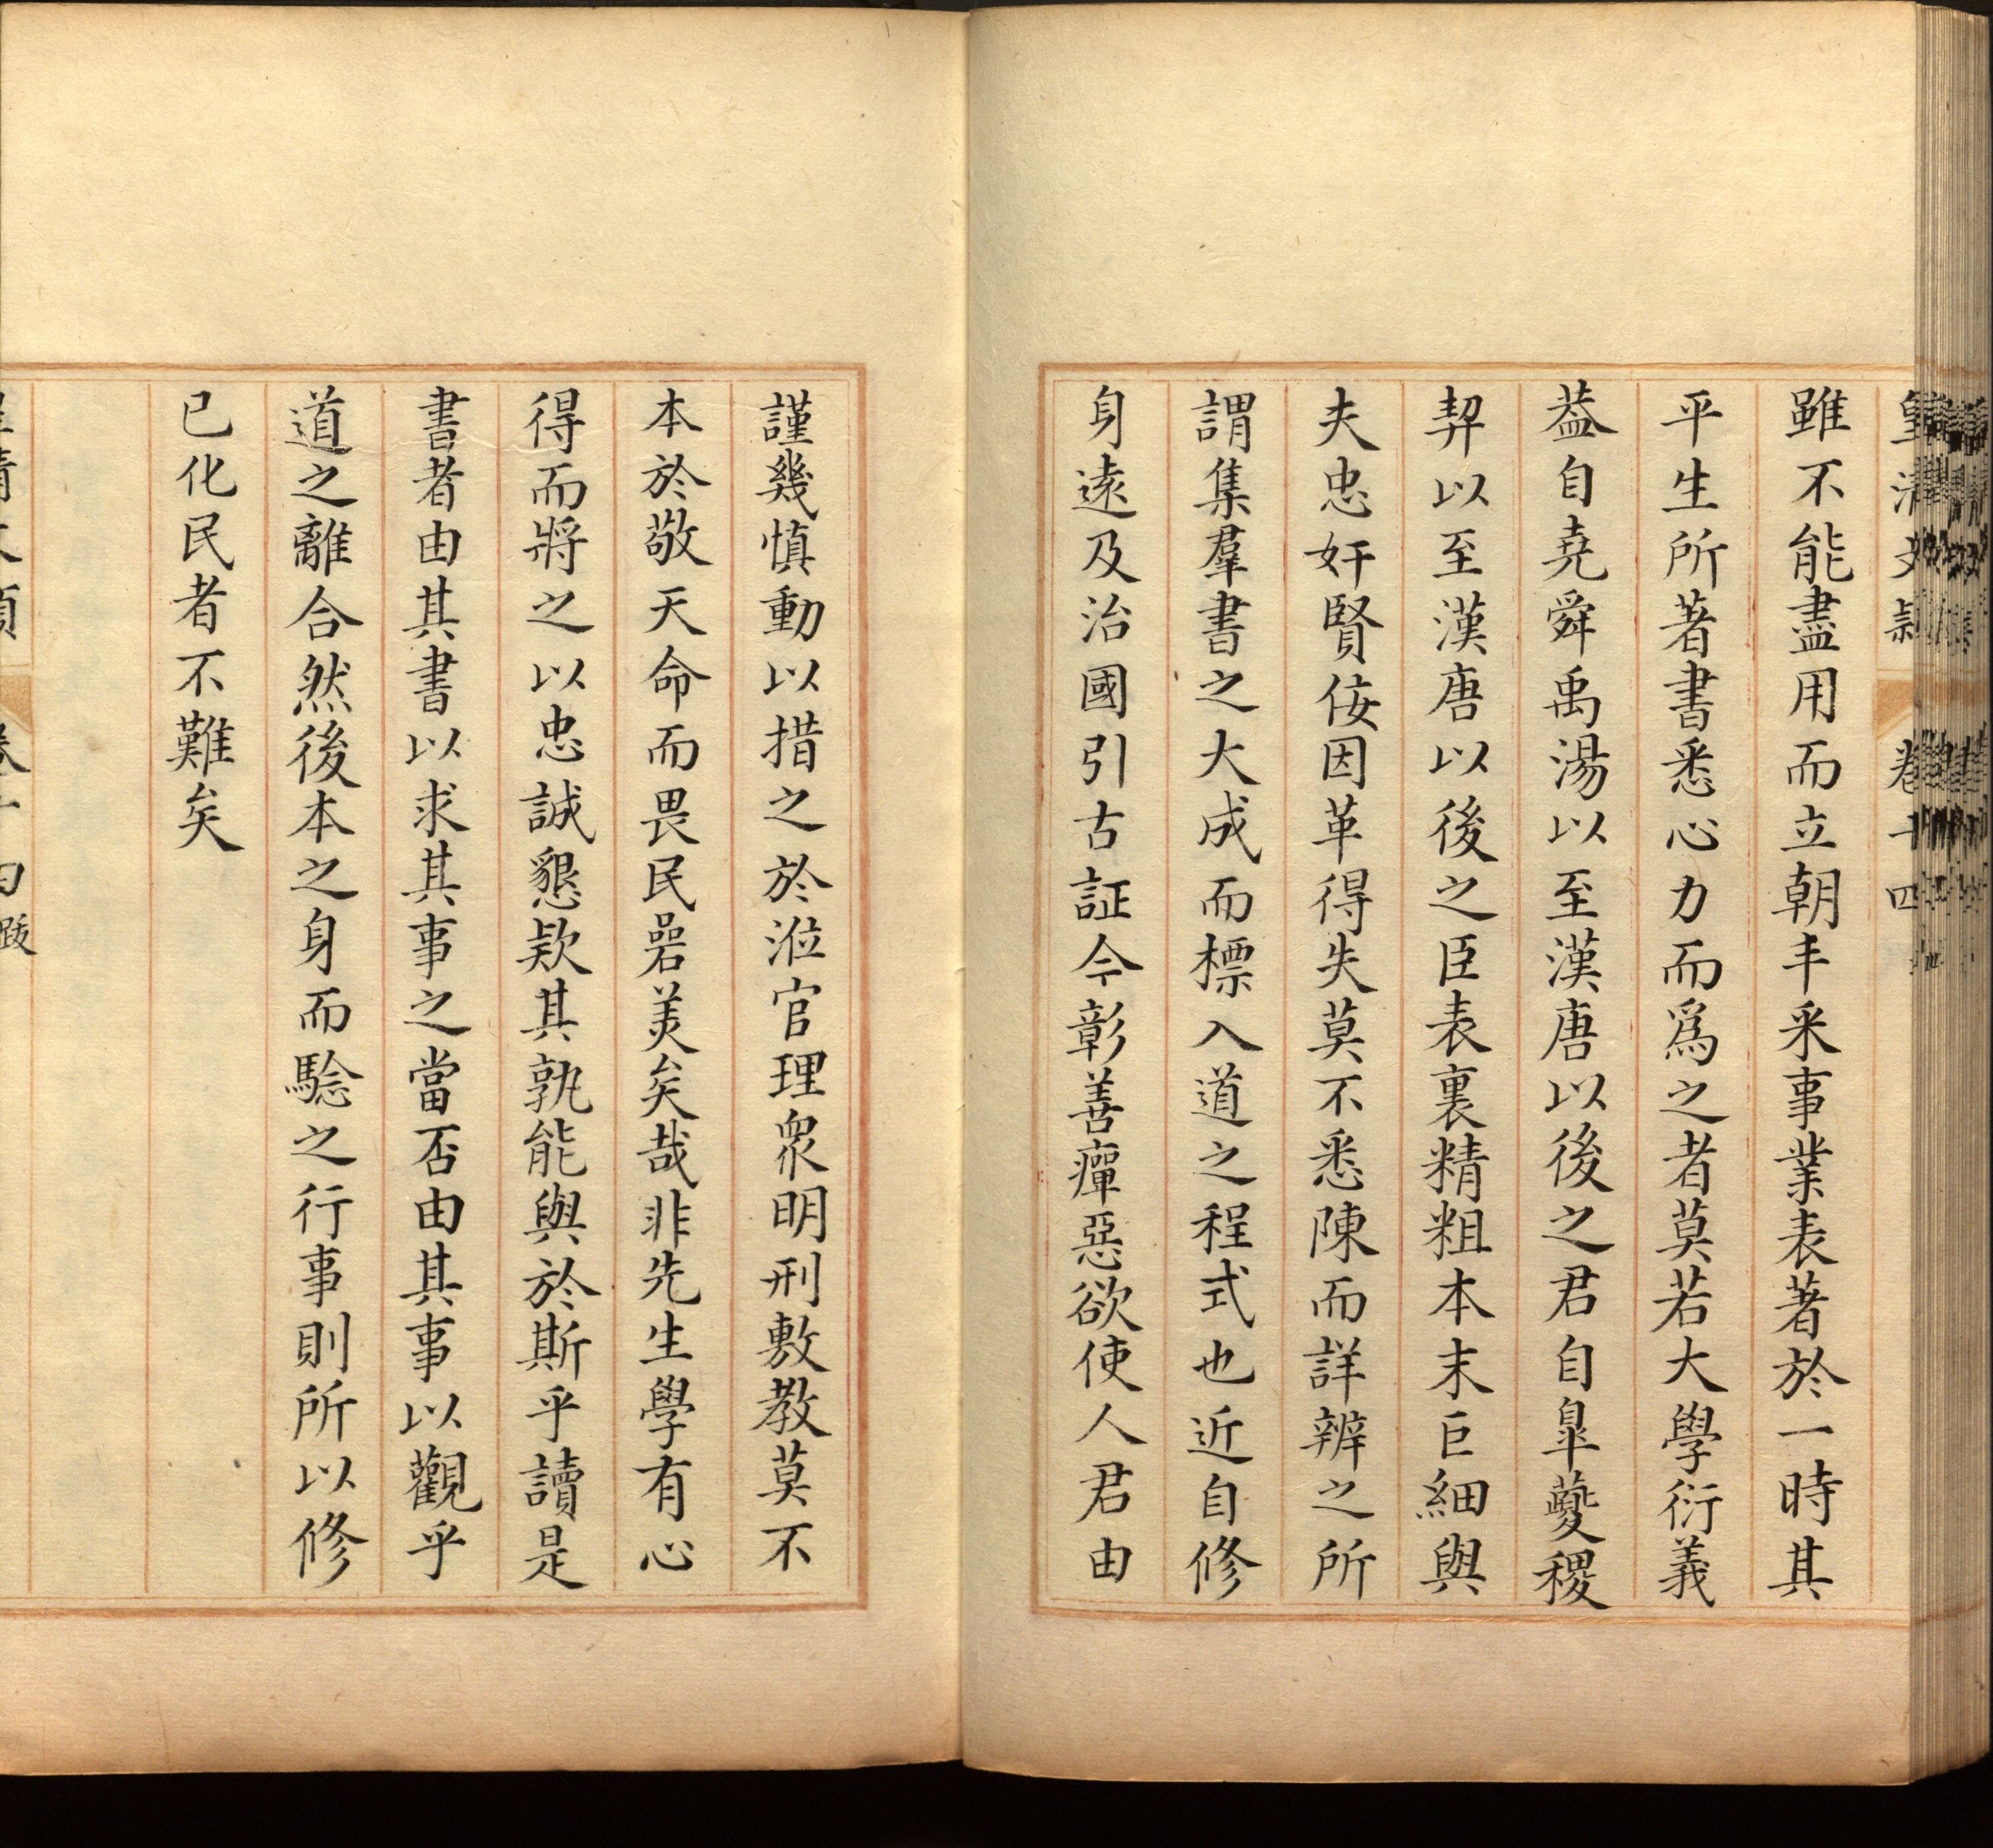 皇清文穎 卷十四
雖不能盡用而立朝丰采事業表著於一時其
平生所著書悉心力而爲之者莫若大學衍義
葢自堯舜禹湯以至漢唐以後之君自皐夔稷
契以至漢唐以後之臣表裏精粗本末巨細與
夫忠奸賢佞因革得失莫不悉陳而詳辨之所
謂集羣書之大成而標入道之程式也近自修
身遠及治國引古証今彰善癉惡欲使人君由
謹幾慎動以措之於涖官理眾明刑敷教莫不
本於敬天命而畏民碞美矣哉非先生學有心
得而將之以忠誠懇欵其孰能與於斯乎讀是
書者由其書以求其事之當否由其事以觀乎
道之離合然後本之身而驗之行事則所以修
已化民者不難矣